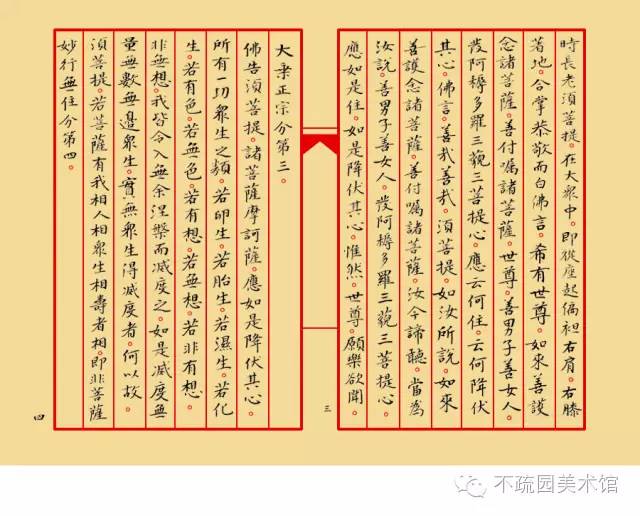 時長老須菩提。在大衆中。即從座起偏袒右肩。右膝
著地。合掌恭敬而白佛言。希有世尊。如來善護
念諸菩薩。善付囑諸菩薩。世尊。善男子善女人。
發阿耨多羅三藐三菩提心。應云何住。云何降伏
其心。佛言。善哉善哉。須菩提。如汝所說。如來
善護念諸菩薩。善付囑諸菩薩。汝今諦聽。當為
汝說。善男子善女人。發阿耨多羅三藐三菩提心。
應如是住。如是降伏其心。惟然。世尊。願樂欲聞。
三
大乘正宗分第三。
佛告須菩提。諸菩薩摩訶薩。應如是降伏其心。
所有一切衆生之類。若卵生。若胎生。若濕生。若化
生。若有色。若無色。若有想。若無想。若非有想。
非無想。我皆令入無余涅槃而滅度之。如是滅度無
量無數無邊衆生。實無衆生得滅度者。何以故
須菩提。若菩薩有我相人相衆生相壽者相。即非菩薩
妙行無住分第四。
四
不疏园美术馆